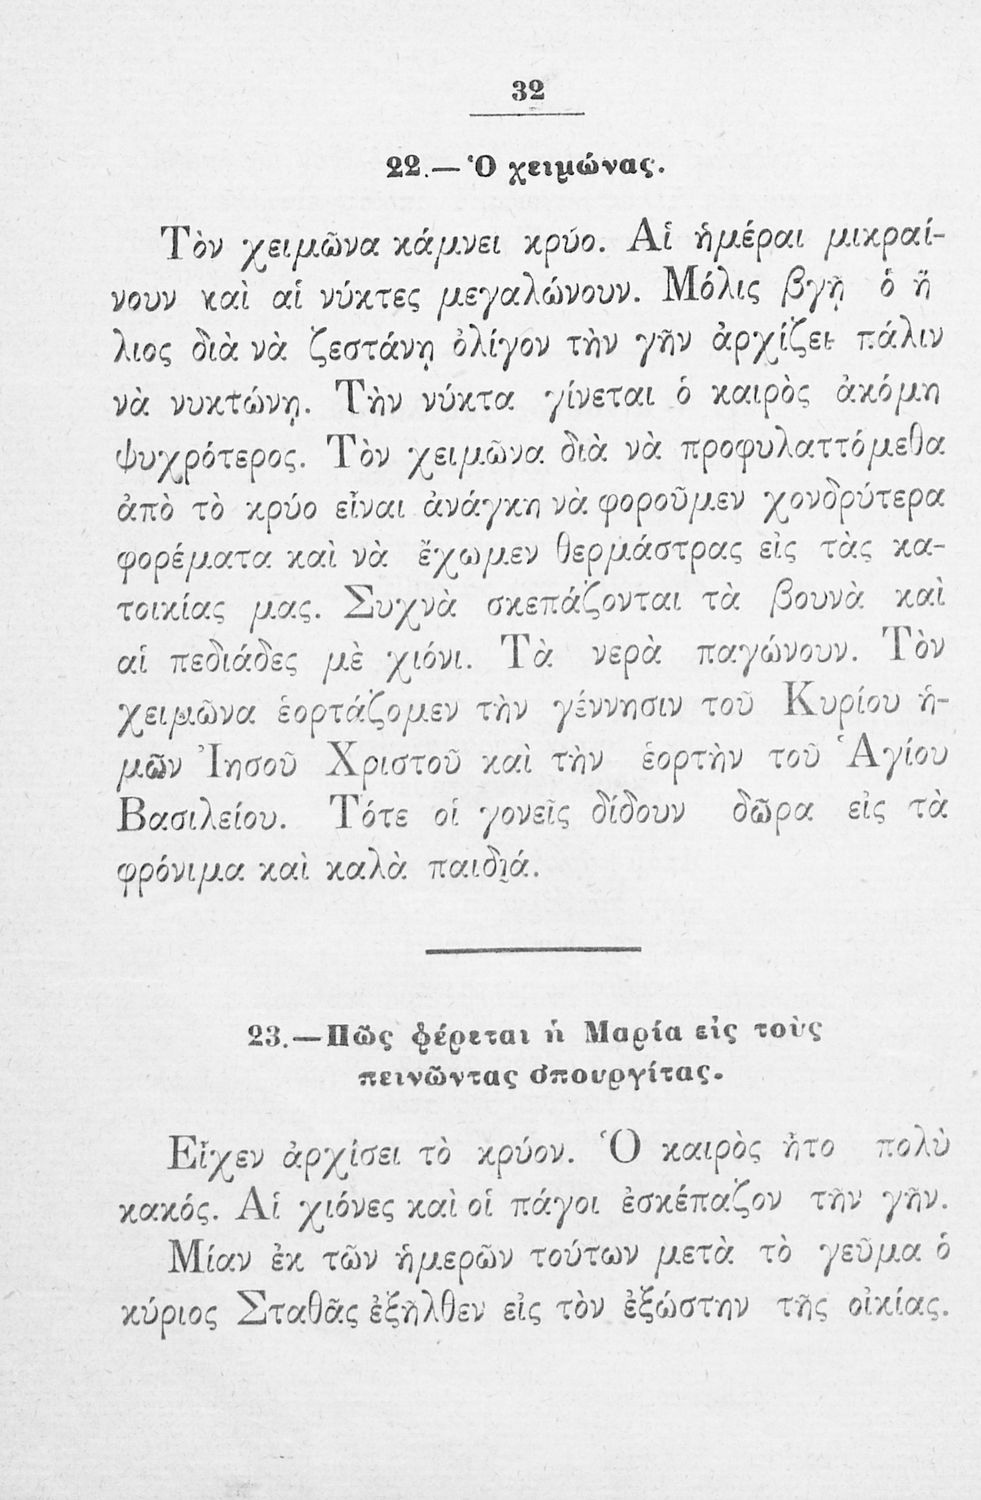 32
22.—Ὁ χειμώνας.
Τὸν χειμῶνα κάμνει κρύο. Αἱ ἡμέραι μικραί-
νουν καὶ αἱ νύκτες μεγαλώνουν. Μόλις βγῇ ὁ ἥ
λιος διὰ νὰ ζεστάνῃ ὀλίγον τὴν γῆν ἀρχίζει πάλιν
νὰ νυκτώνῃ. Τὴν νύκτα γίνεται ὁ καιρὸς ἀκόμη
ψυχρότερος. Τὸν χειμῶνα διὰ νὰ προφυλαττόμεθα
ἀπὸ τὸ κρύο εἶναι ἀνάγκη νὰ φοροῦμεν χονδρύτερα
φορέματα καὶ νὰ ἔχωμεν θερμάστρας εἰς τὰς κα-
τοικίας μας. Συχνὰ σκεπάζονται τὰ βουνὰ καὶ
αἱ πεδιάδες μὲ χιόνι. Τὰ νερὰ παγώνουν. Τὸν
χειμῶνα ἑορτάζομεν τὴν γέννησιν τοῦ Κυρίου ἡ-
μῶν Ἰησοῦ Χριστοῦ καὶ τὴν ἑορτὴν τοῦ Ἁγίου
Βασιλείου. Τότε οἱ γονεῖς δίδουν δῶρα εἰς τὰ
φρόνιμα καὶ καλὰ παιδι̯ά.
23.—Πῶς φέρεται ἡ Μαρία εἰς τοὺς
πεινῶντας σπουργίτας.
Εἶχεν ἀρχίσει τὸ κρύον. Ὁ καιρὸς ἦτο πολὺ
κακός. Αἱ χιόνες καὶ οἱ πάγοι ἐσκέπαζον τὴν γῆν.
Μίαν ἐκ τῶν ἡμερῶν τούτων μετὰ τὸ γεῦμα ὁ
κύριος Σταθᾶς ἐξῆλθεν εἰς τὸν ἐξώστην τῆς οἰκίας.